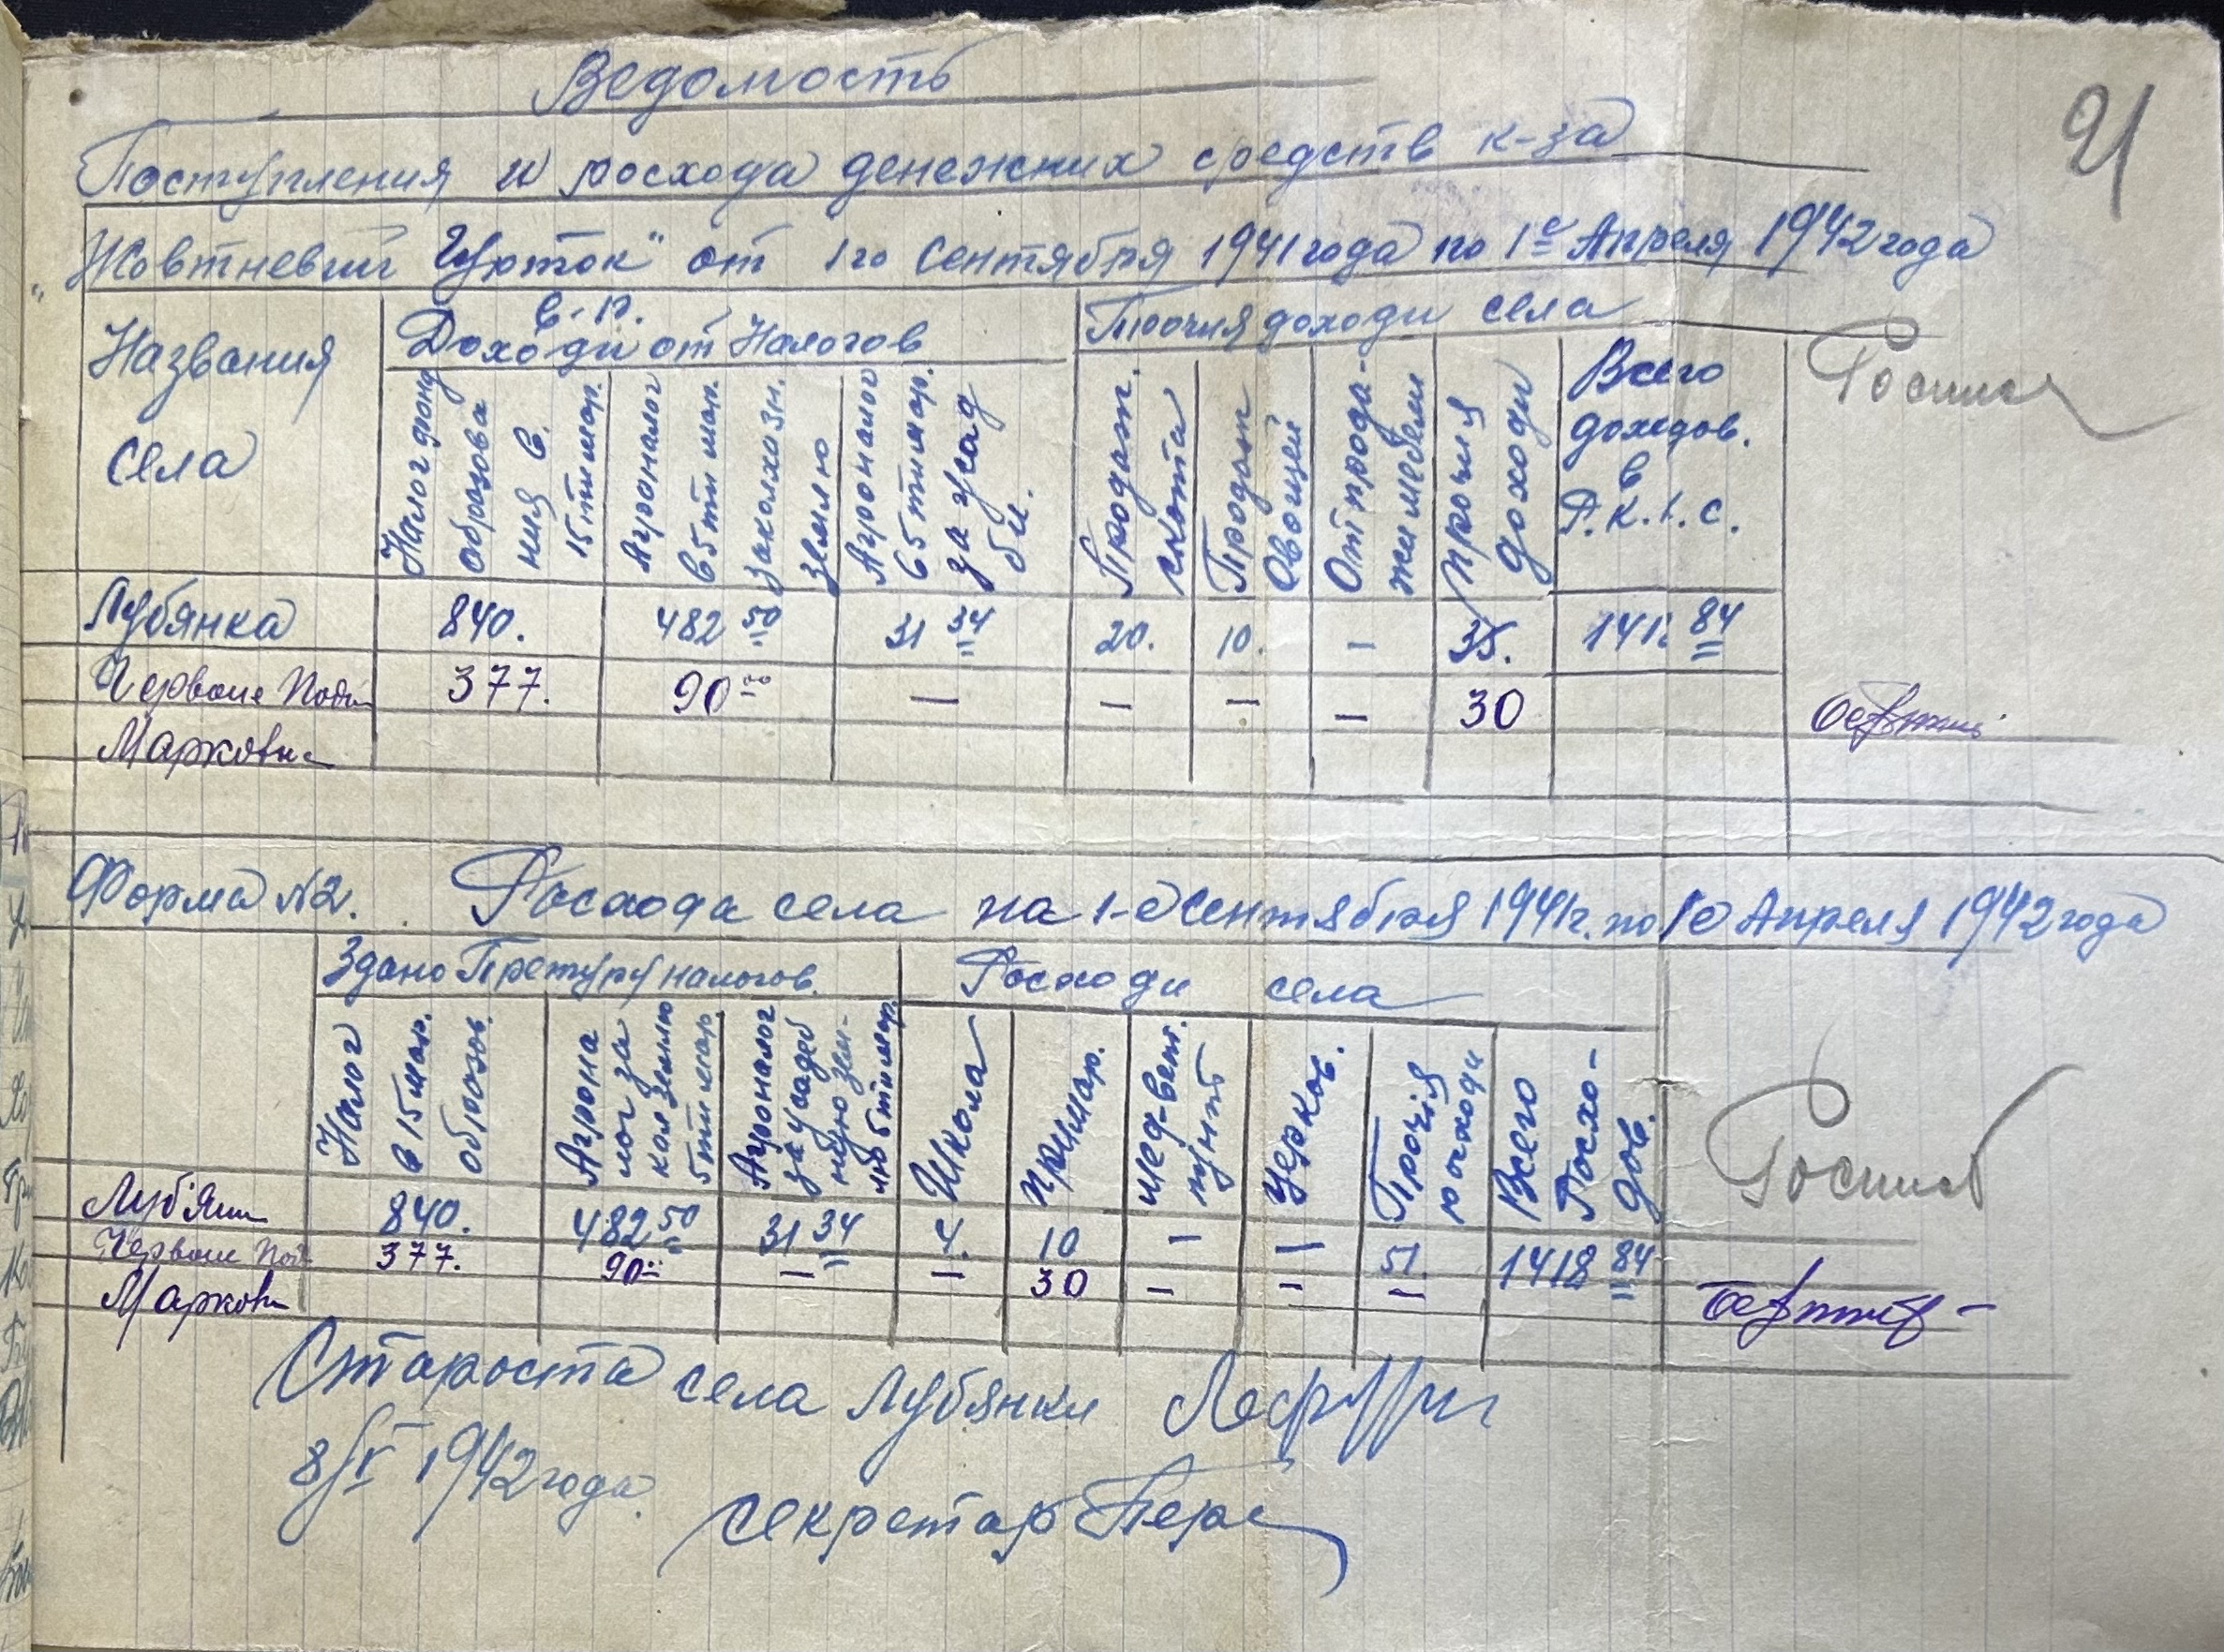 91
Ведомость
Поступления и росхода денежних средств к-за
„Жовтневий Гурток" от 1го Сентября 1941 года по 1е Апреля 1942 года
Названия села
Доходи от Налогов
Прочия доходи села
Росписк
Налог
образова
ния в
15ти мар.
Агроналог
в 5ти мар.
за колхозн.
землю
Агроналог
в 5ти мар.
за усад
би.
Продаж.
скота
Продаж
Овощей
От прода-
жи мебели
прочия
доходи
Всего
доходов.
в
Р.К.К.С.
Лубянка 840. 482 50 31 34 20. 10. – 35. 84
Червоне Под 377. 90 00 – – – – 30
Марковка
Форма №2. Росхода села на 1-е Сентября 1941г. по 1е Апреля 1942 года
Здано Претуру налогов.
Росходи села
Налог
в 15 мар.
образов.
Агрона
лог за
кол землю
5ти мар.
Агроналог
за усадеб
ную зем-
лю 5ти мар.
Школа
примар.
мед-вет.
пункт
церков.
Прочія
росходи
Всего
Росхо-
дов.
Роспис
Лубянк 840. 482 50 31 34 4. 10 – – 51. 1418 84
Червоне Под 377. 90 00 – – 30 – – –
Марковк
Староста села Лубянки
8/IV 1942 года.
секретар